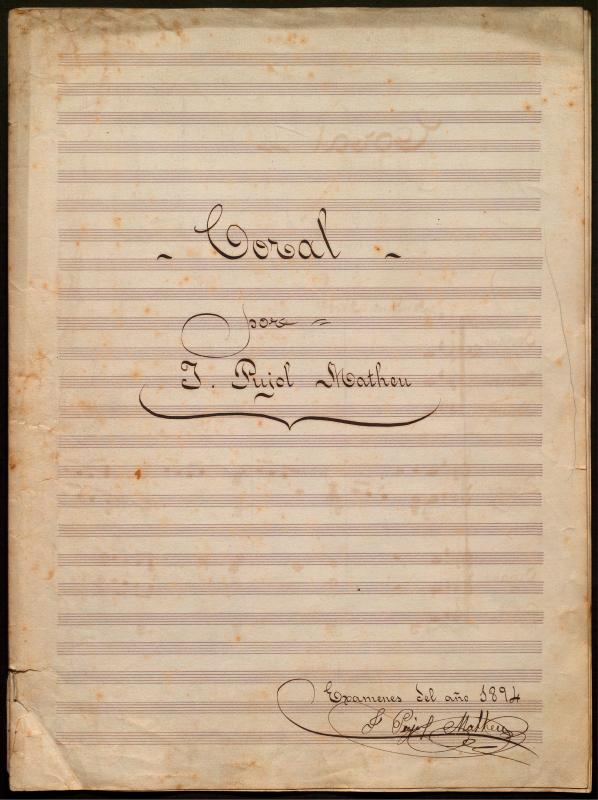 - Coral -
por =
J. Pujol Matheu
Examenes del año 1894
J Pujol Matheu